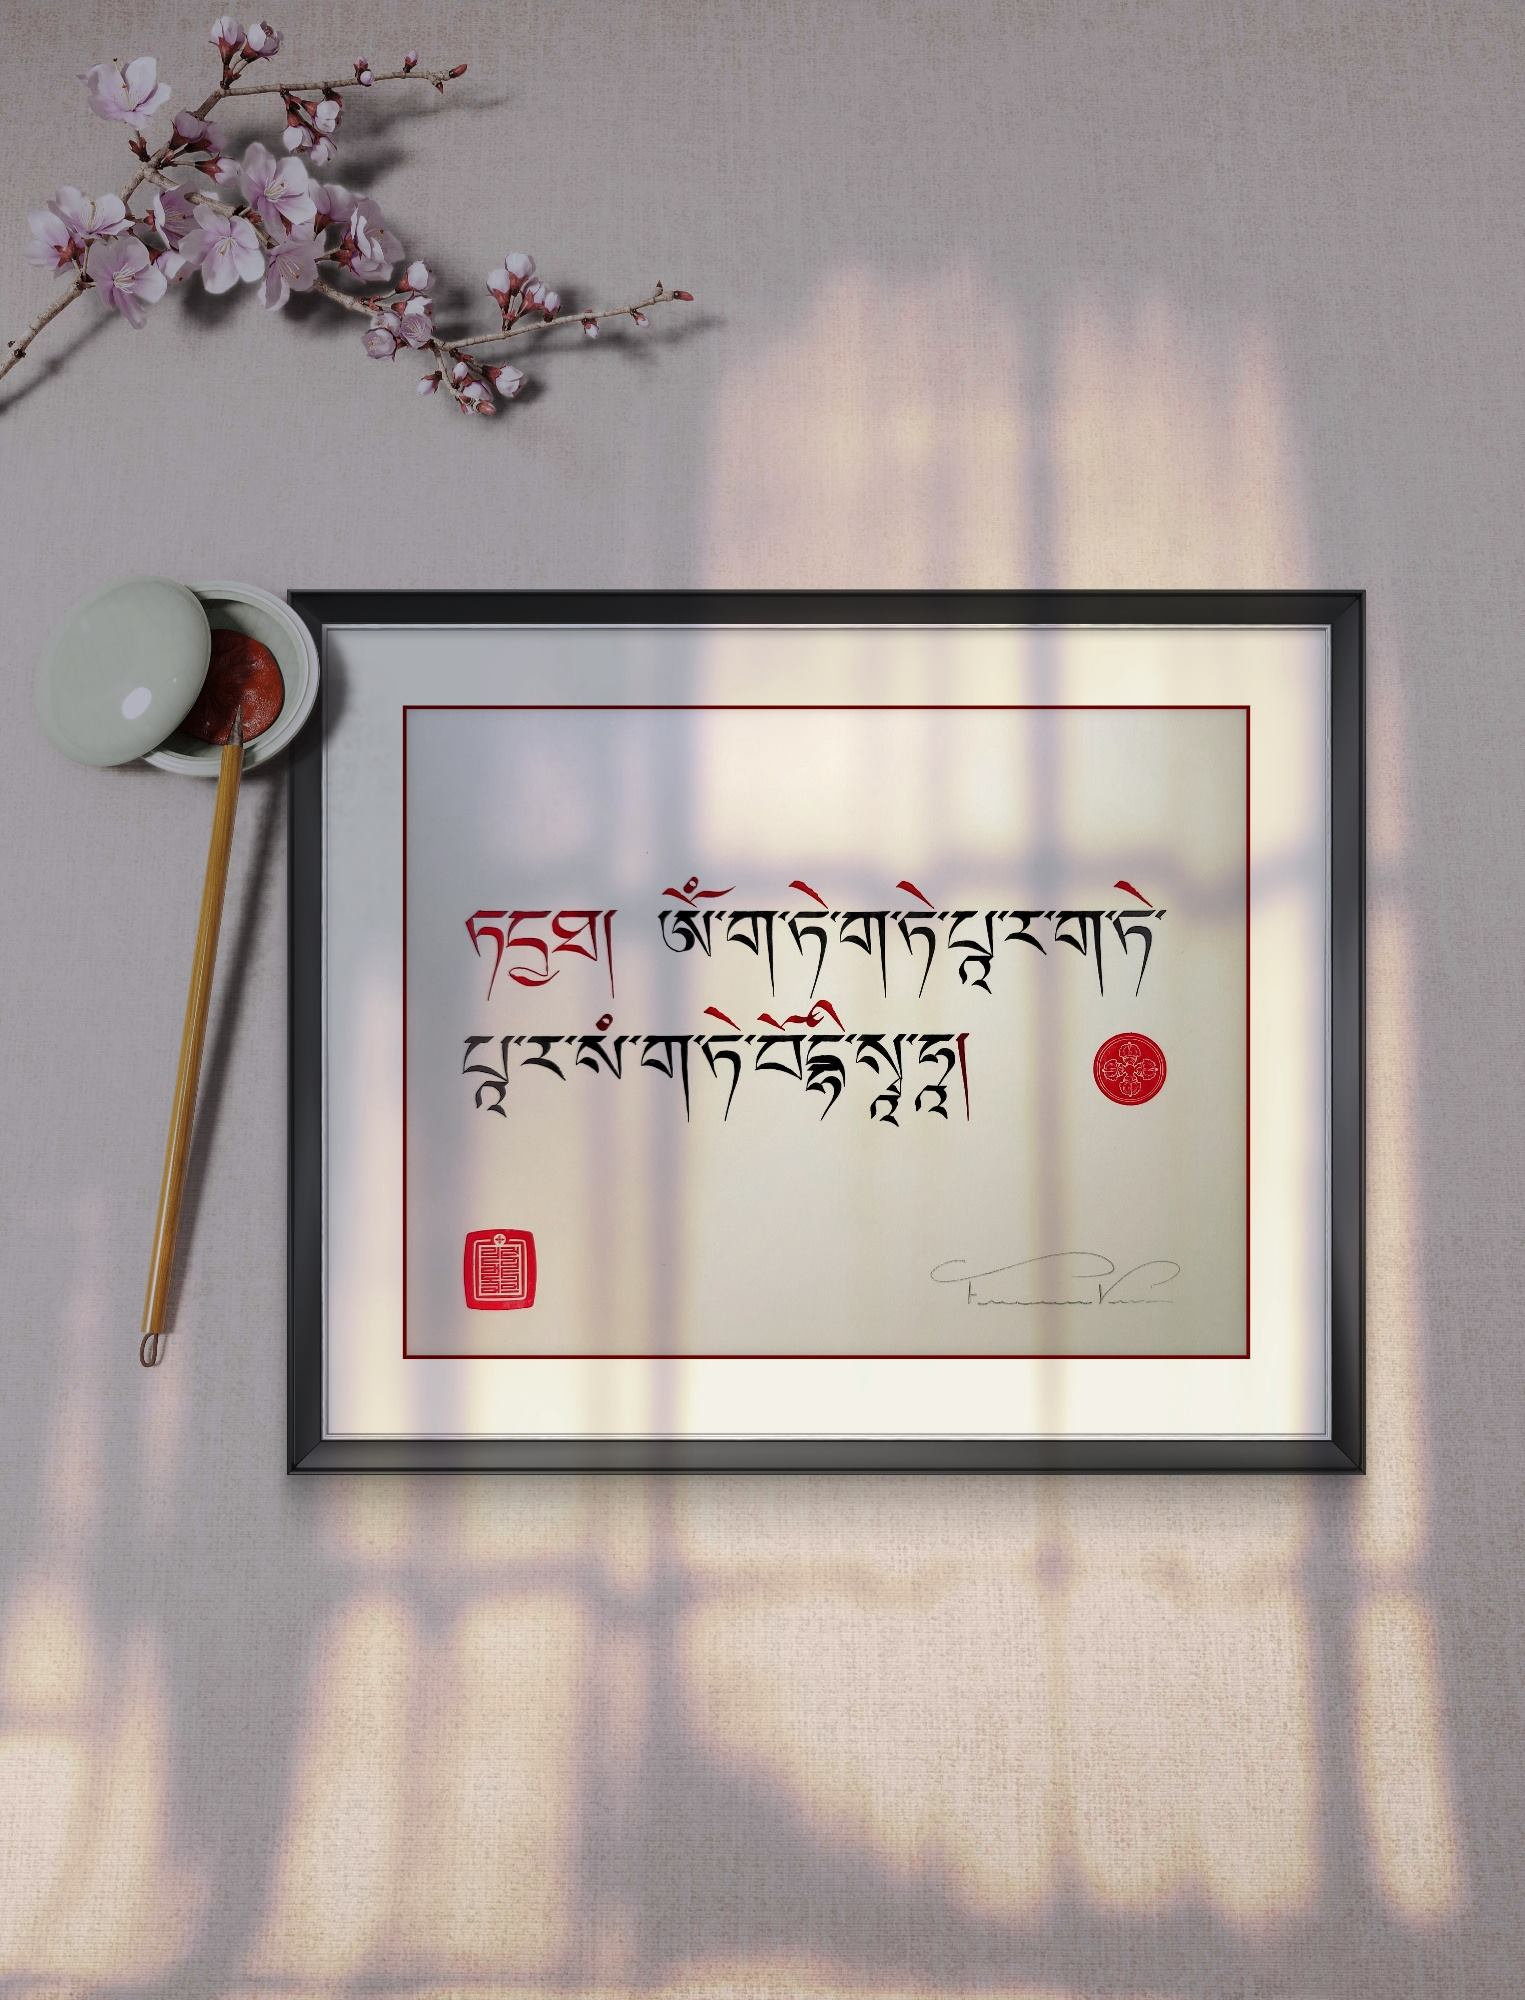 ཏདྱ་ཐཱ།  ཨོཾ་ག་ཏེ་ག་ཏེ་པཱ་ར་ག་ཏེ་
པཱ་ར་སཾ་ག་ཏེ་བོ་དྷི་སྭཱ་ཧཱ།